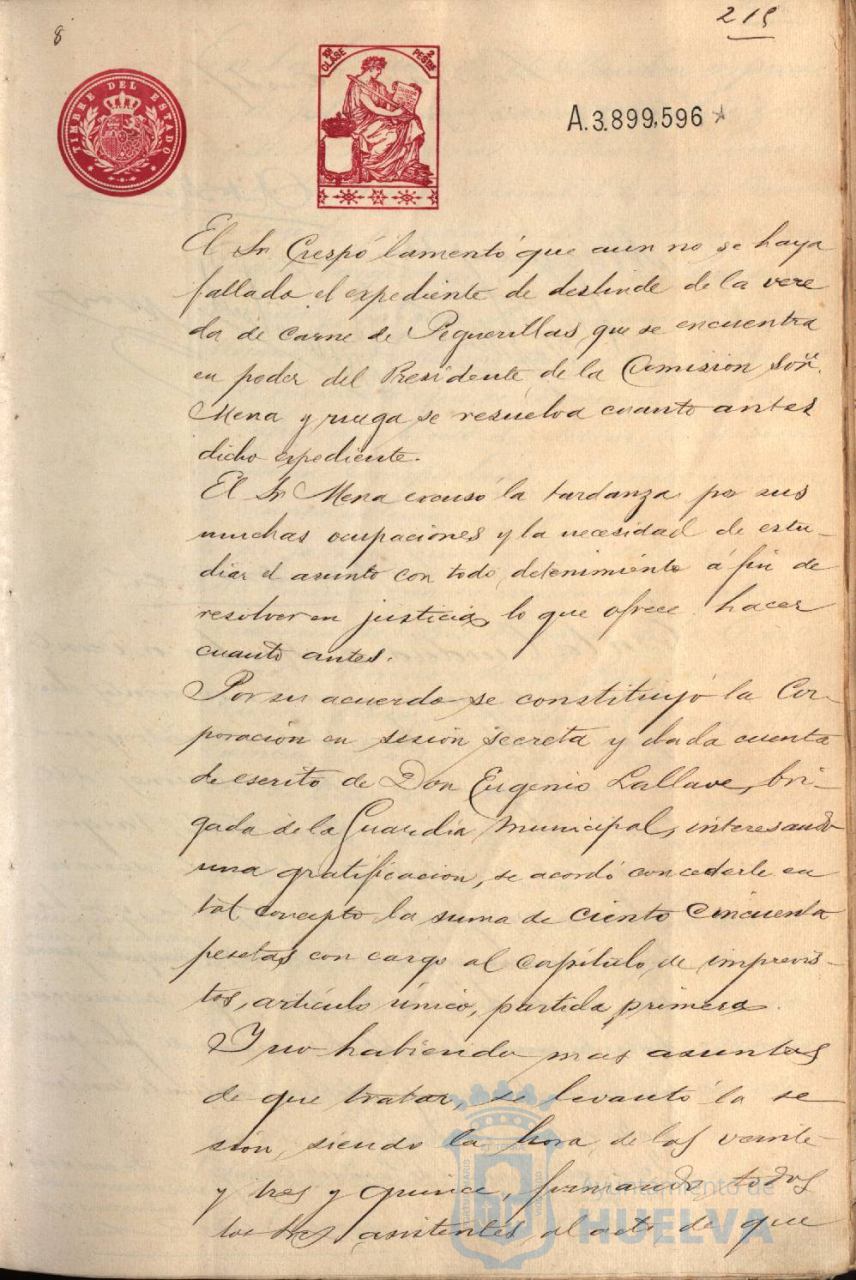 8
215
TIMBRE DEL ESTADO
10ª CLASE 2 PESTAS
A.3.899,596
El Sr Crespo lamentó que aun no se haya
fallado el expediente de deslinde de la vere
da de carne de Peguerillas, que se encuentra
en poder del Presidente de la Comision Señr.
Mena y ruega se resuelva cuanto antes
dicho expediente.
El Sr Mena excusó la tardanza por sus
muchas ocupaciones y la necesidad de estu-
diar el asunto con todo detenimiento á fin de
resolver en justicia, lo que ofrece hacer
cuanto antes.
Por su acuerdo se constituyó la Cor-
poración en sesión secreta y dada cuenta
de escrito de Don Eugenio Lallave, bri-
gada de la Guardia Municipal, interesando
una gratificacion, se acordó concederle en
tal concepto la suma de ciento cincuenta
pesetas con cargo al capítulo de imprevis-
tos, artículo único, partida primera.
Y no habiendo mas asuntos
de que tratar, se levantó la se
sión, siendo la hora de las veinte
y tres y quince, firmando todos
los asistentes al acto de que
Ayuntamiento de
HUELVA